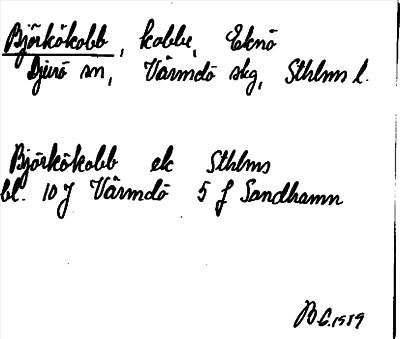 Björkökobb, kobbe, Eknö
Djurö sn, Värmdö skg, Sthlms l.
Björkökobb ek Sthlms
bl. 10 J Värmdö 5 f Sandhamn
1989